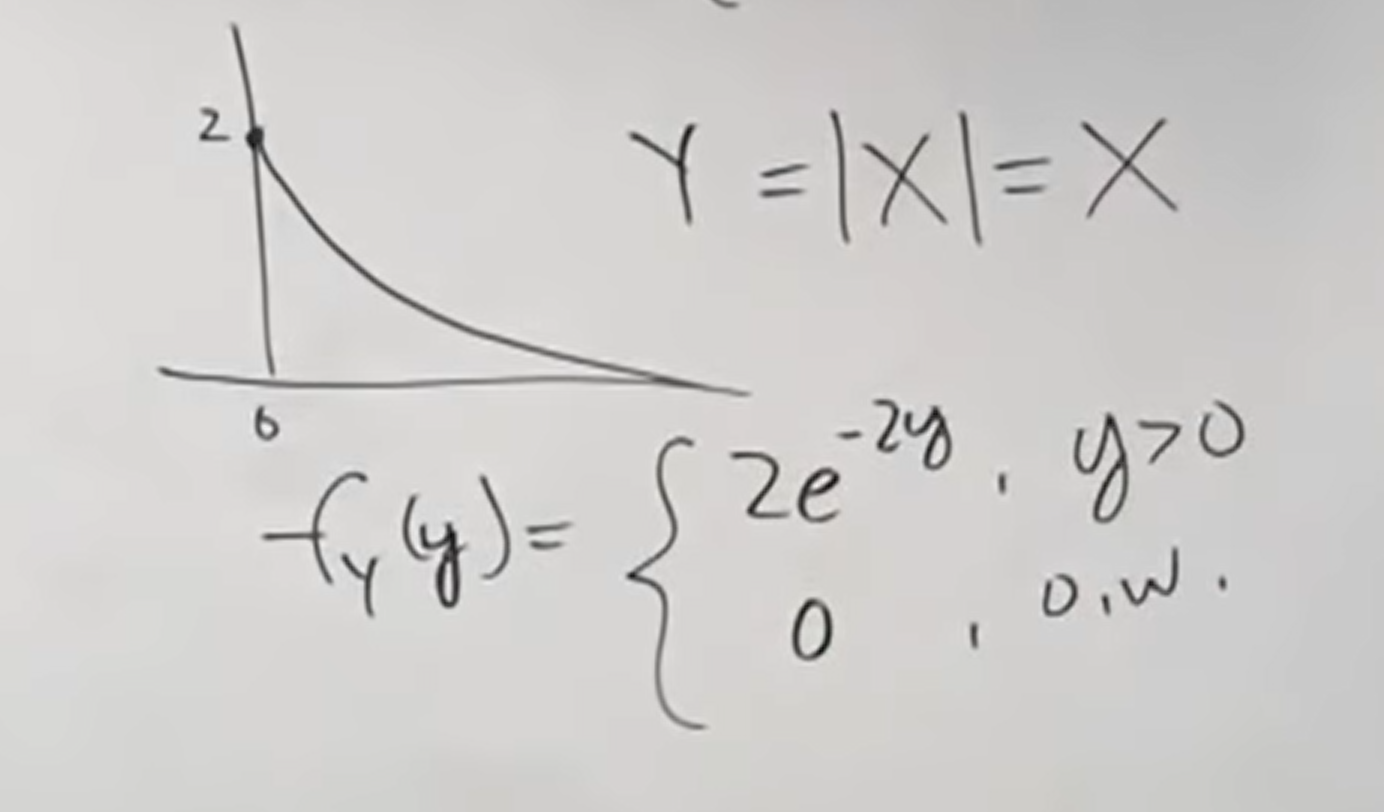 2
Y = |X| = X
0
f_Y(y) = { 2e^{-2y} , y > 0
0 , o.w.